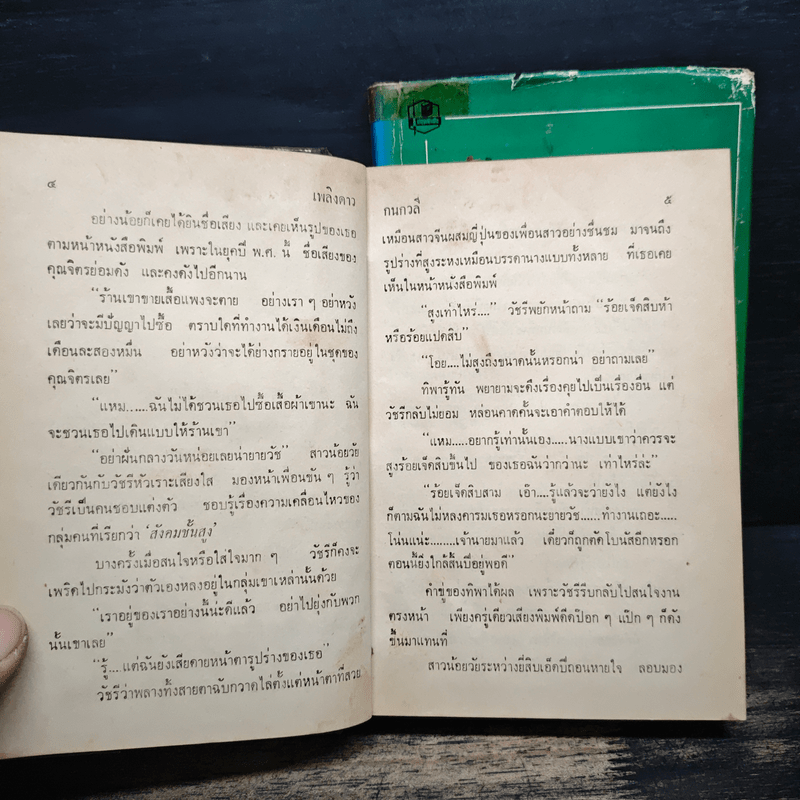 ๔
เพลิงดาว
อย่างน้อยก็เคยได้ยินชื่อเสียง และเคยเห็นรูปของเธอ
ตามหน้าหนังสือพิมพ์ เพราะในยุคปี พ.ศ. นี้ ชื่อเสียงของ
คุณจิตรย่อมดัง และคงดังไปอีกนาน
“ร้านเขาขายเสื้อแพงจะตาย อย่างเรา ๆ อย่าหวัง
เลยว่าจะมีปัญญาไปซื้อ ตราบใดที่ทำงานได้เงินเดือนไม่ถึง
เดือนละสองหมื่น อย่าหวังว่าจะได้ย่างกรายอยู่ในชุดของ
คุณจิตรเลย”
“แหม.....ฉันไม่ได้ชวนเธอไปซื้อเสื้อผ้าเขานะ ฉัน
จะชวนเธอไปเดินแบบให้ร้านเขา”
“อย่าฝันกลางวันหน่อยเลยน่ายายวัช” สาวน้อยวัย
เดียวกันกับวัชรีหัวเราะเสียงใส มองหน้าเพื่อนขัน ๆ รู้ว่า
วัชรีเป็นคนชอบแต่งตัว ชอบรู้เรื่องความเคลื่อนไหวของ
กลุ่มคนที่เรียกว่า ‘สังคมชั้นสูง’
บางครั้งเมื่อสนใจหรือใส่ใจมาก ๆ วัชรีก็คงจะ
เพริดไปกระมังว่าตัวเองหลงอยู่ในกลุ่มเขาเหล่านั้นด้วย
“เราอยู่ของเราอย่างนี้น่ะดีแล้ว อย่าไปยุ่งกับพวก
นั้นเขาเลย”
“รู้....แต่ฉันยังเสียดายหน้าตารูปร่างของเธอ”
วัชรีว่าพลางทิ้งสายตาฉับกวาดไล่ตั้งแต่หน้าตาที่สวย
กนกวลี
๕
เหมือนสาวจีนผสมญี่ปุ่นของเพื่อนสาวอย่างชื่นชม มาจนถึง
รูปร่างที่สูงระหงเหมือนบรรดานางแบบทั้งหลาย ที่เธอเคย
เห็นในหน้าหนังสือพิมพ์
“สูงเท่าไหร่....” วัชรีพยักหน้าถาม “ร้อยเจ็ดสิบห้า
หรือร้อยแปดสิบ”
“โอย....ไม่สูงถึงขนาดนั้นหรอกน่า อย่าถามเลย”
ทิพารู้ทัน พยายามจะดึงเรื่องคุยไปเป็นเรื่องอื่น แต่
วัชรีกลับไม่ยอม หล่อนคาดคั้นจะเอาคำตอบให้ได้
“แหม.....อยากรู้เท่านั้นเอง.....นางแบบเขาว่าควรจะ
สูงร้อยเจ็ดสิบขึ้นไป ของเธอฉันว่ากว่านะ เท่าไหร่ล่ะ”
“ร้อยเจ็ดสิบสาม เอ๊า....รู้แล้วจะว่ายังไง แต่ยังไง
ก็ตามฉันไม่หลงคารมเธอหรอกนะยายวัช.....ทำงานเถอะ...
โน่นแน่ะ........เจ้านายมาแล้ว เดี๋ยวก็ถูกตัดโบนัสอีกหรอก
ตอนนี้ยิ่งใกล้สิ้นปีอยู่พอดี”
คำขู่ของทิพาได้ผล เพราะวัชรีรีบกลับไปสนใจงาน
ตรงหน้า เพียงครู่เดียวเสียงพิมพ์ดีดป๊อก ๆ แป๊ก ๆ ก็ดัง
ขึ้นมาแทนที่
สาวน้อยวัยระหว่างยี่สิบเอ็ดปีถอนหายใจ ลอบมอง